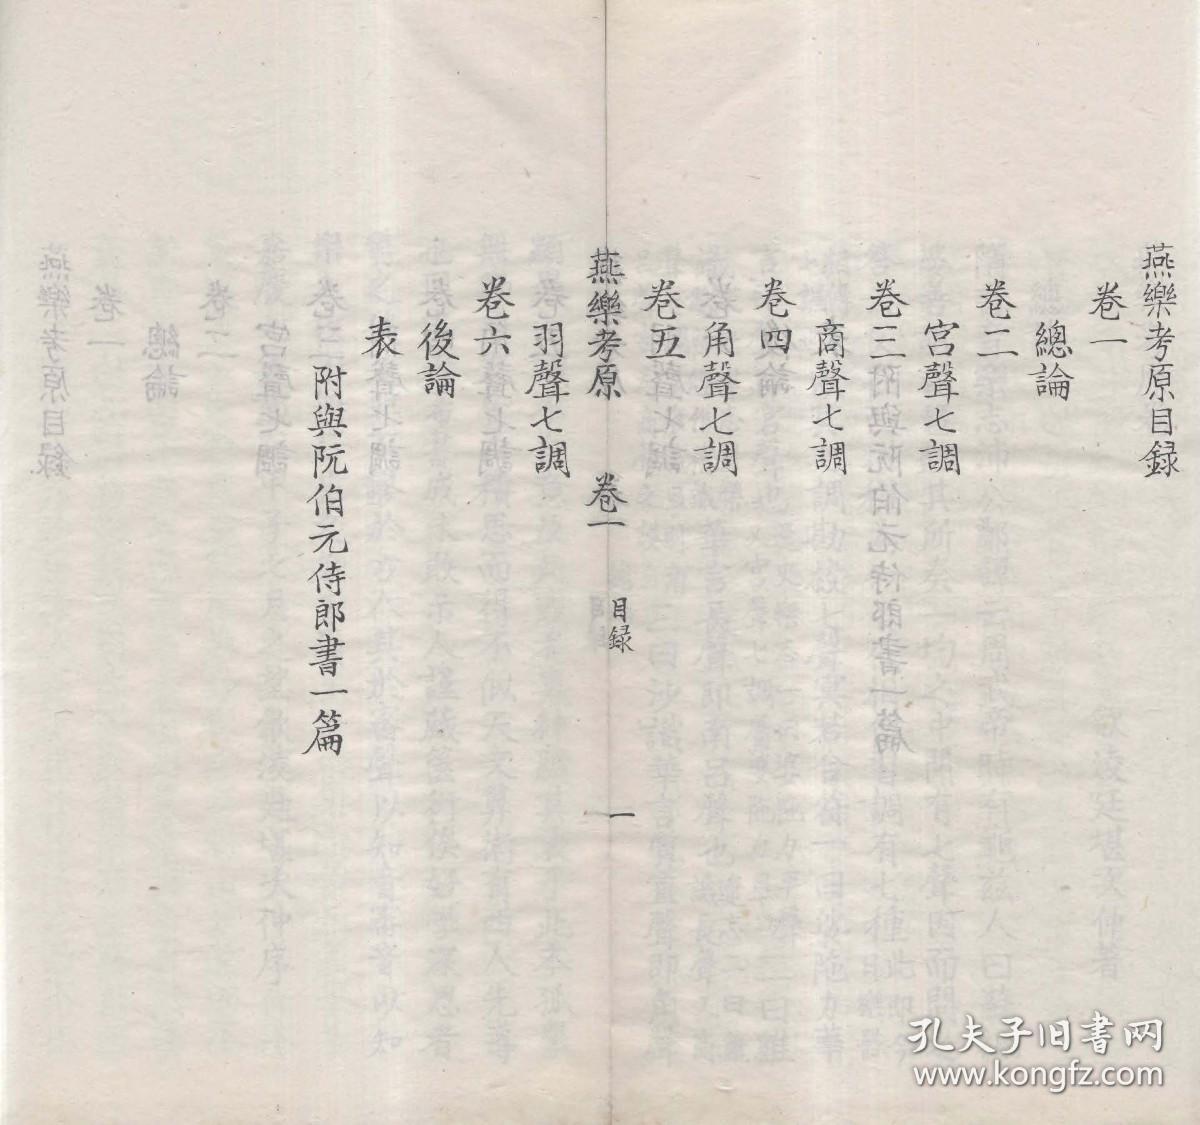 燕樂考原目録
卷一
總論
卷二
宮聲七調
卷三
商聲七調
卷四
角聲七調
卷五
燕樂考原 卷一 目録 一
羽聲七調
卷六
後論
表
附與阮伯元侍郎書一篇
孔夫子旧书网
www.kongfz.com